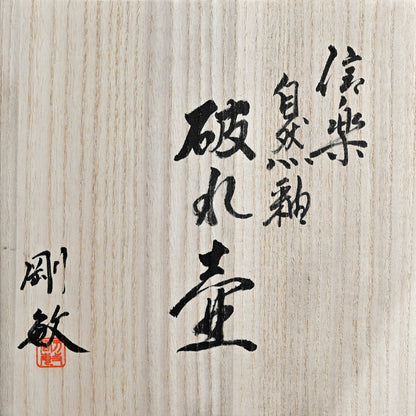 信楽
自然釉
破れ壷
剛敏